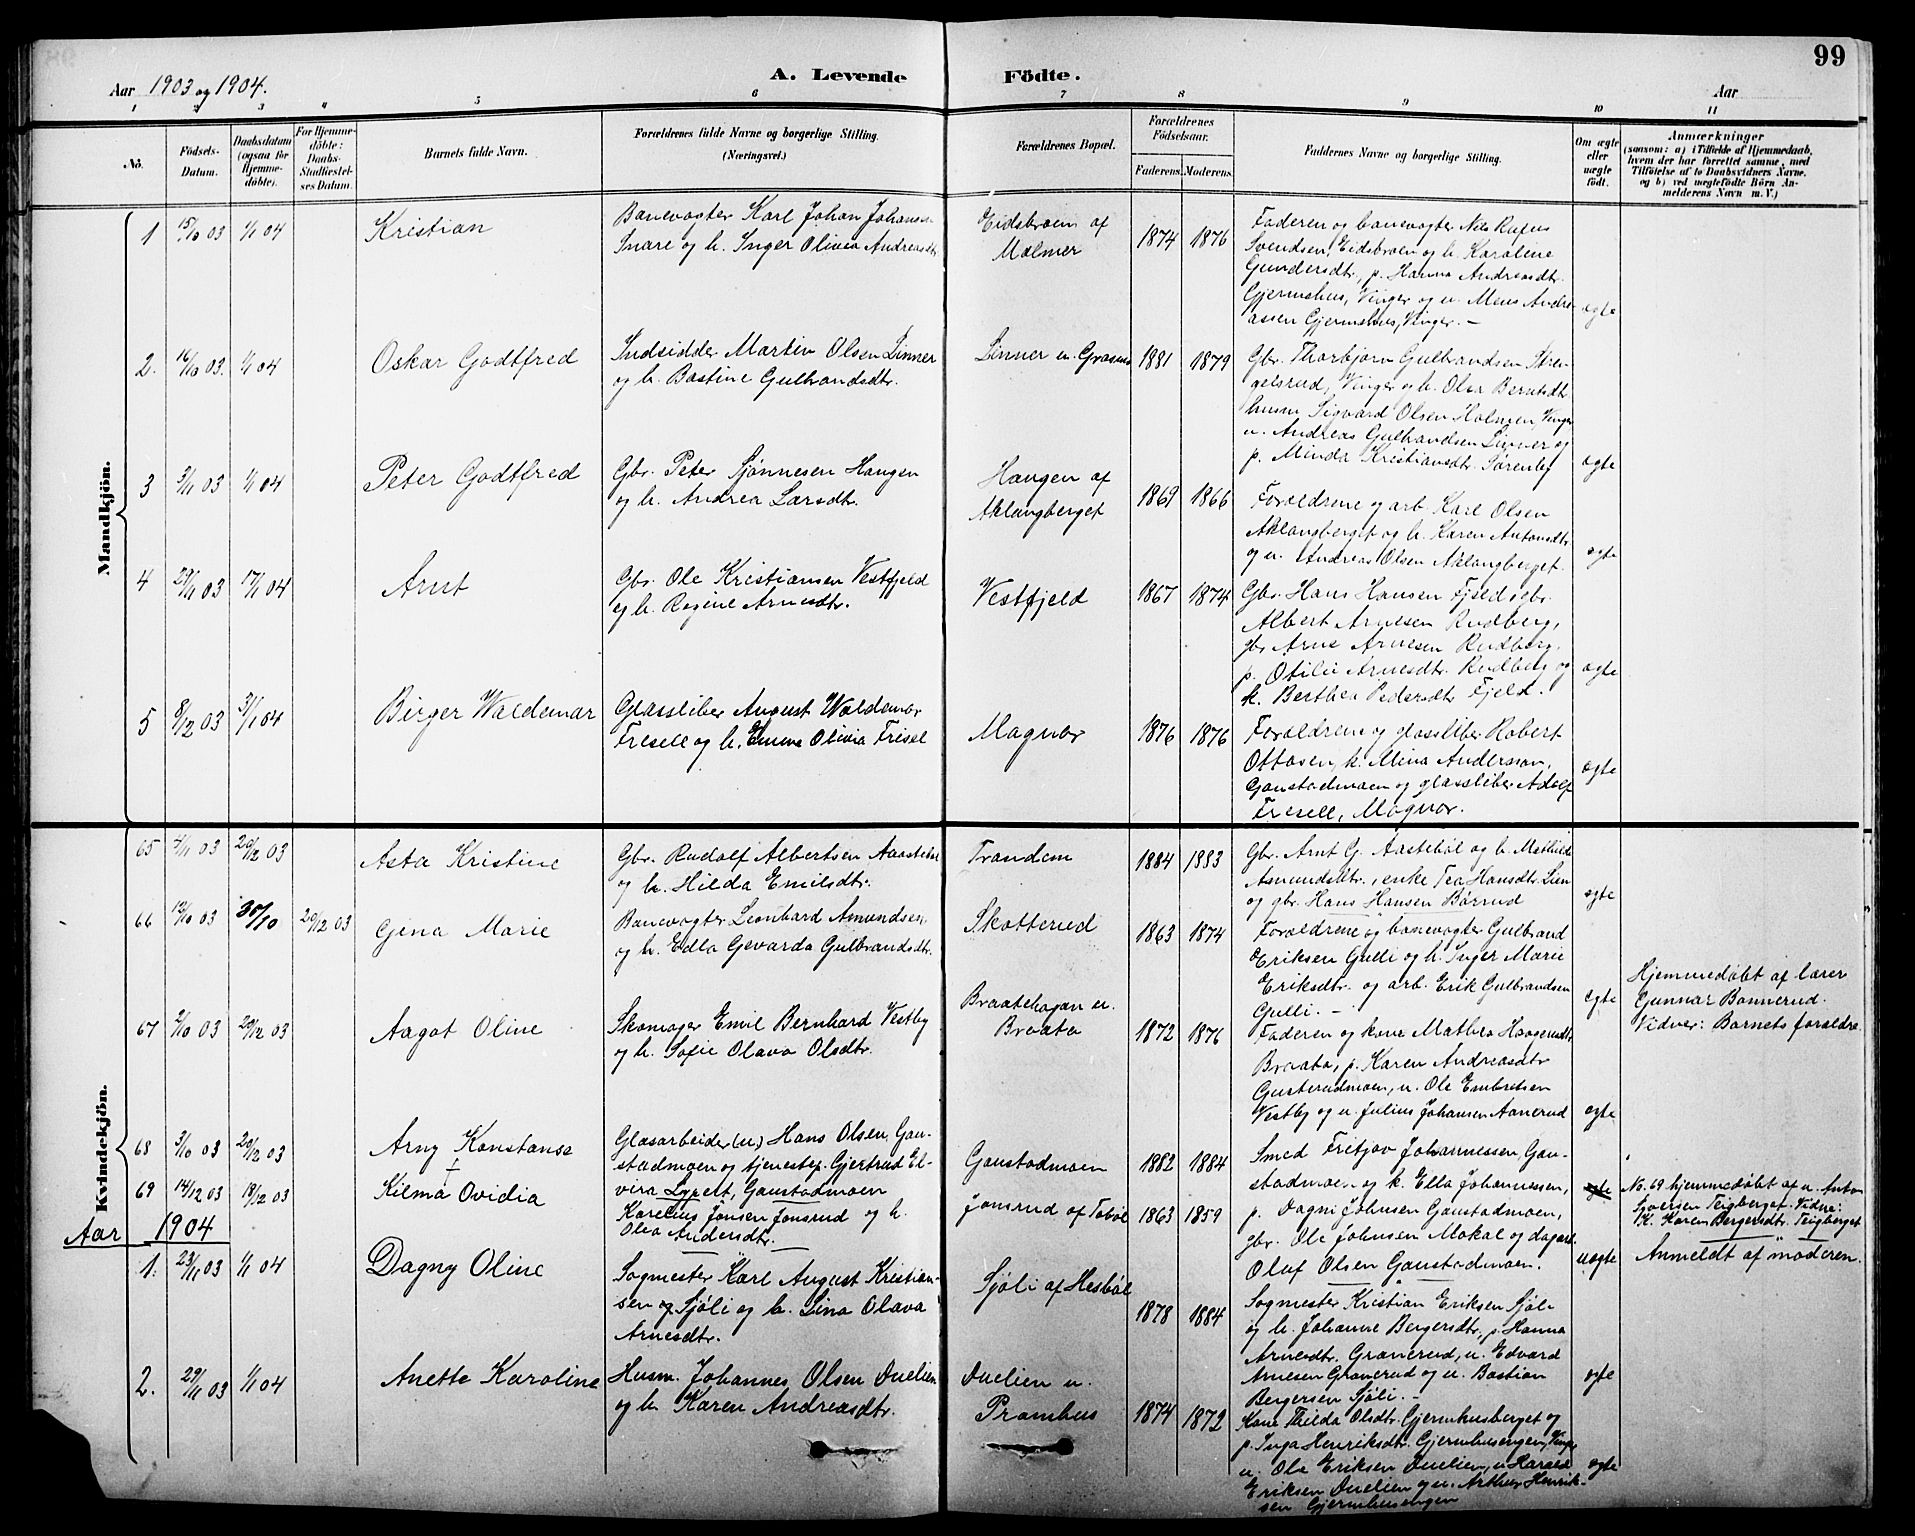 99
Aar 1903 og 1904.
A. Levende Födte.
Aar
1 2 3 4 5 6 7 8 9 10 11
No.
Födsels-Datum.
Daabsdatum (ogsaa for Hjemmedöbte).
For Hjemmedöbte: Daabs-Stadfæstelses Datum.
Barnets fulde Navn.
Forældrenes fulde Navne og borgerlige Stilling. (Næringsvei.)
Forældrenes Bopæl.
Forældrenes Födselsaar.
Faderens. Moderens.
Faddernes Navne og borgerlige Stilling.
Om ægte eller uægte födt.
Anmærkninger
(saasom: a) i Tilfælde af Hjemmedaab,
hvem der har forrettet samme, med
Tilföielse af to Daabsvidners Navne.
og b) ved uægtefödte Börn Anmelderens Navn m. V.)
Mandkjön.
1 15/10 03 1/1 04 Kristian
Banevogter Karl Johan Johansen
Snare og h. Inger Olivia Andreasdtr.
Eidsbraen af
Malmer
1874 1876
Faderen og banevogter Nils Rufus
Svendsen, Eidsbraen og h. Karoline
Gundersdtr., p. Hanna Andreasdtr.
Gjermshus, Vinger og u. Mens Andre-
assen Gjermshus, Vinger. –
ægte
2. 16/10 03. 1/1 04 Oskar Godtfred
Indsidder Martin Olsen Linner
og h. Bastine Gulbrandsdtr.
Linner u.
1881 1879
Gbr. Thorbjørn Gulbrandsen Stren-
gelsrud, Vinger og h. Olea Berntsdtr.
husm Sigvard Olsen Holmen, Vinger
u. Andreas Gulbrandsen Linner og
p. Minda Kristiansdtr.
ægte
3 1/1 04 Peter Godtfred
Gbr. Peter Sjønnesen Haugen
og h. Andrea Larsdtr.
Haugen af
Aklangberget
1869 1866
Forældrene og arb. Karl Olsen
Aklangberget og h. Karen Antonsdtr.
og u. Andreas Olsen Aklangberget.
ægte
4 29/11 03 17/1 04 Arnt
Gbr. Ole Kristiansen Vestfjeld
og h. Regine Arnesdtr.
Vestfjeld
1867 1874
Gbr. Hans Hansen Fjeld, gbr.
Albert Arnesen Rudberg,
gbr Arne Arnesen Rudberg.
p. Otilie Arnesdtr. Rudberg og
k. Berthea Pedersdtr. Fjeld.
ægte
5 8/12 03 31/1 04 Birger Waldemar
Glassliber August Waldemar
Fresell og h. Emma Olivia Fresell
Magnor
1876 1876
Forældrene og glassliber Robert
Ottosen, k. Mina Anderson,
Gaustadmoen og glassliber Adolf
Fresell, Magnor.
ægte
Kvindekjön.
65 4/11 03 20/12 03 Asta Kristine
Gbr. Rudolf Albertsen Aastebøl
og h. Hilda Emilsdtr.
Trandem
1884 1883
Gbr. Arnt G. Aastebøl og h. Mathild
Amundsdtr., enke Tea Hansdtr. Lien
og gbr. Hans Hansen Børrud
ægte
66 12/10 03 30/10 20/12 03 Gjena Marie
Banevogter Leonhard Amundsen
og h. Edla Gevarda Gulbrandsdtr.
Skotterud
1863 1874
Forældrene og banevogter Gulbrand
Eriksen Gulli og h. Inger Marie
Eriksdtr. og arb. Erik Gulbrandsen
Gulli. –
ægte
Hjemmedøbt af lærer
Gunnar Bonnerud.
Vidner: Barnets forældre.
67 2/10 03 20/12 03 Aagot Oline
Skomager Emil Bernhard Vestby
og h. Sofie Olava Olsdtr.
Braatehagan u.
Braata
1872 1876
Faderen og kone Mathea Haagensdtr.
Braata, p. Karen Andreasdtr
Gusterudmoen, u. Ole Embretsen
Vestby og u. Julius Johansen Aanerud
ægte
68 3/10 03 20/12 03 Arny Konstanse
Glasarbeider (u.) Hans Olsen, Gau-
stadmoen og tjenestep. Gjertrud El-
vira Lyrelt, Gaustadmoen
Gaustadmoen
1882 1884
Smed Fritjov Johannessen, Gau-
stadmoen og k. Ella Johannessen,
p. Dagni Johnsen Gaustadmoen,
gbr. Ole Johnsen Mokal og dagarb.
Oluf Olsen Gaustadmoen.
uægte
Anmeldt af moderen.
69 14/12 03 18/12 03 † Kilma Ovidia
Karelius Jonsen Jonsrud og h.
Olea Andersdtr.
Jonsrud af Tobøl
1863 1859
ægte
No. 69 hjemmedøbt af u. Anton
Syversen Teigberget. Vidne:
K. Karen Bergersdtr. Teigberget
Aar 1904
1. 23/11 03 1/1 04 Dagny Oline
Sagmester Karl August Kristian-
sen og Sjøli og h. Lina Olava
Arnesdtr.
Sjøli af Hesbøl
1878 1884
Sagmester Kristian Eriksen Sjøli
og h. Johanne Bergersdtr., p. Hanna
Arnesdtr. Granerud, u. Edvard
Arnesen Granerud og u. Bastian
Bergersen Sjøli. –
ægte
2. 29/11 03 1/1 04 Anette Karoline
Husm. Johannes Olsen Duelien
og h. Karen Andreasdtr.
Duelien u.
Pramhus
1874 1872
Kone Thilda Olsdtr. Gjermhusberget og
p. Inga Henriksdtr. Gjermhusengen, Vinger
u. Ole Eriksen Duelien, u. Harald
Eriksen Duelien og u. Arthur Henrik-
sen Gjermhusengen
ægte